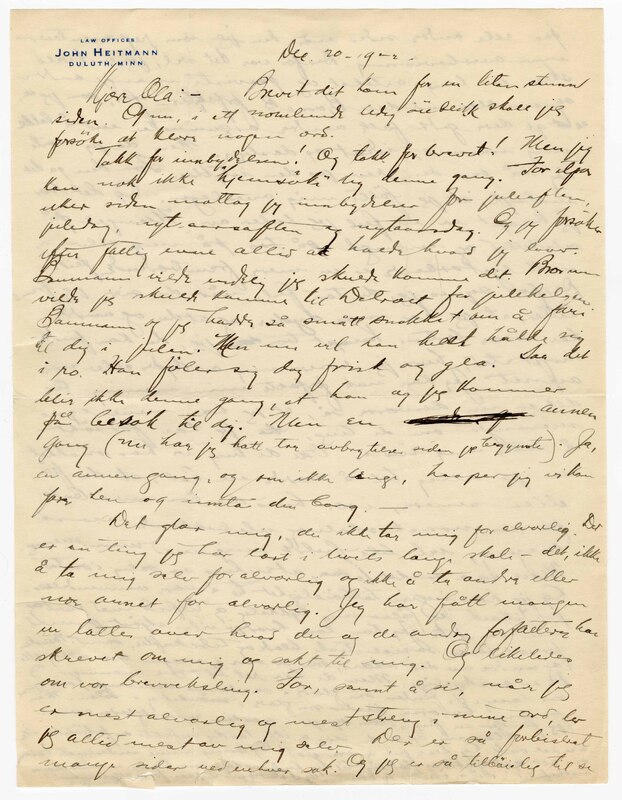 LAW OFFICES
JOHN HEITMANN
DULUTH, MINN
Dec. 20 - 192
Kjære Ola: - Brevet dit kom for en liten stund
siden. Og nu, i ett ledig öieblikk skall jeg
forsöke at klore nogen ord.
Takk for innbydelsen! Og takk for brevet! Men jeg
kan nok ikke hjemsöke dig denne gang. For
uker siden mottog jeg innbydelser for juleaften,
juledag, nyttaarsaften og nyttaarsdag. Og jeg forsöker
efter fattig evne altid at holde hvad jeg lover.
Baumann vilde endelig jeg skulde komme dit.
vilde jeg skulde komme til Detroit for julehelgen.
Baumann og jeg hadde så smått snakket om å fare
til dig i julen. Men nu vil han helst holde sig
i ro. Han föler sig dog frisk og gla. Saa det
blir ikke denne gang, at han og jeg kommer
på besök til dig. Men en annen
gang (nu har jeg hatt tre avbrytelser siden jeg begynnte). Ja,
en annen gang, og om ikke lenge, haaper jeg vi kan
fare hen og innta din borg. -
Det glær mig, du ikke tar mig for alvorlig. Der
er en ting jeg har lært i livets lange skole - det, ikke
å ta mig selv for alvorlig og ikke å ta andre eller
noe annet for alvorlig. Jeg har fått mangen
en latter over hvad du og de andre forfattere har
skrevet om mig og sakt til mig. Og likeledes
om vor brevveksling. For, sannt å si, når jeg
er mest alvorlig og mest streng i mine ord, ler
jeg altid mest av mig selv. Der er så forbislet
mange sider ved enhver sak. Og jeg er så tilböielig til se